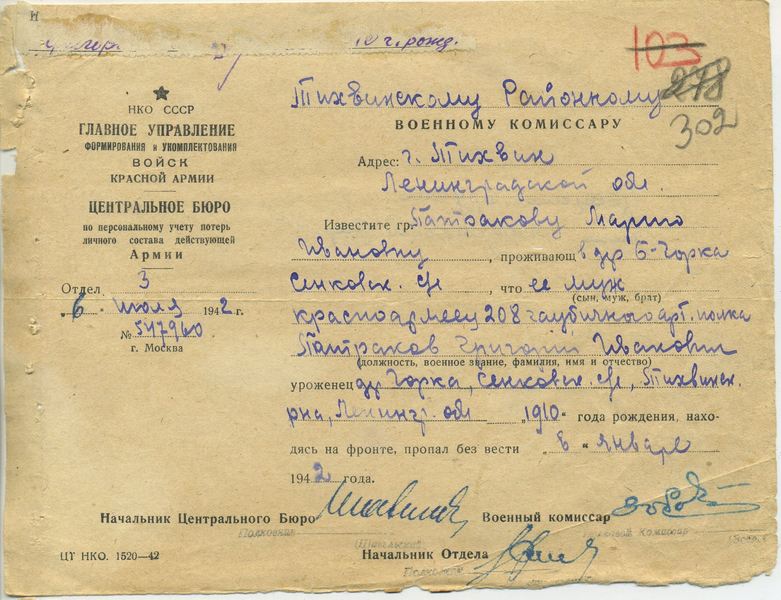 Н
10 г. рожд.
103
Тихвинскому Районному
278
ВОЕННОМУ КОМИССАРУ
302
НКО СССР
ГЛАВНОЕ УПРАВЛЕНИЕ
ФОРМИРОВАНИЯ и УКОМПЛЕКТОВАНИЯ
ВОЙСК
КРАСНОЙ АРМИИ
ЦЕНТРАЛЬНОЕ БЮРО
по персональному учету потерь
личного состава действующей
Армии
Отдел 3
„6 июля 1942 г.
№ 547960
г. Москва
Адрес: г. Тихвин
Ленинградской обл.
Известите гр. Патракову Марию
Ивановну, проживающ в др Б-Горка
Сенковск. с/с, что ее муж
(сын, муж, брат)
красноармеец 208 гаубичного арт. полка
Патраков Григорий Иванович
(должность, военное звание, фамилия, имя и отчество)
уроженец др Горка, Сенковск. с/с, Тихвинск.
р-на, Ленингр. обл „1910“ года рождения, нахо-
дясь на фронте, пропал без вести в „ январе
1942 года.
Начальник Центрального Бюро
Военный комиссар
Полковник
Комиссар
Начальник Отдела
ЦТ НКО. 1520—42